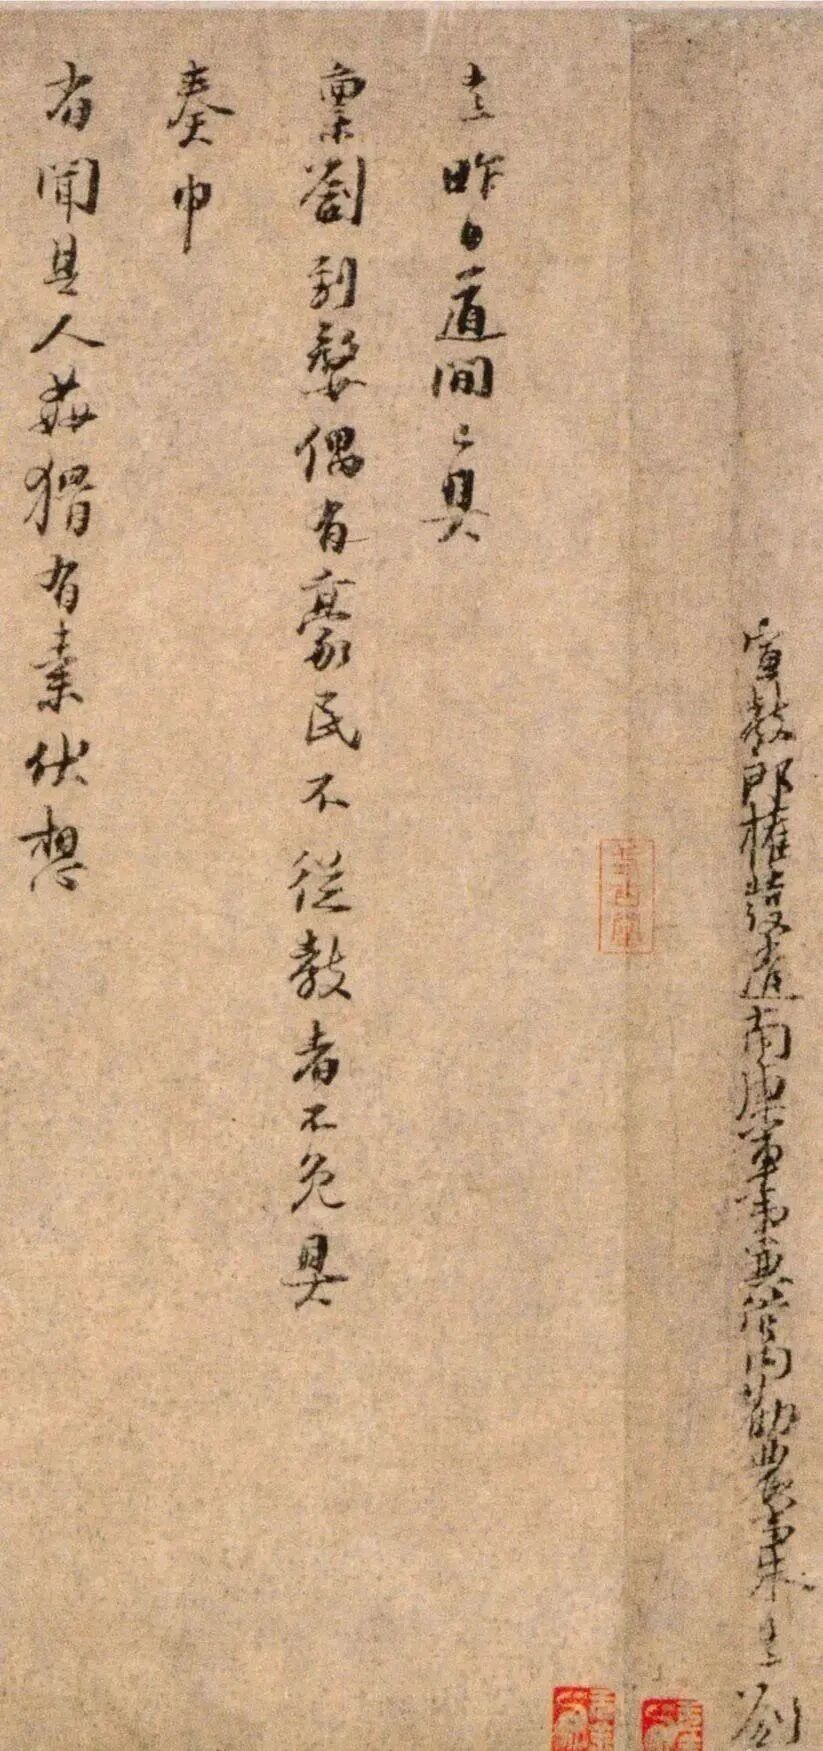 宣教郎權發遣南康軍事兼管内勸農事朱熹劄
熹昨日道間已具
稟劄到婺偶有豪民不從教者不免具
奏申
省聞其人姦猾有素伏想